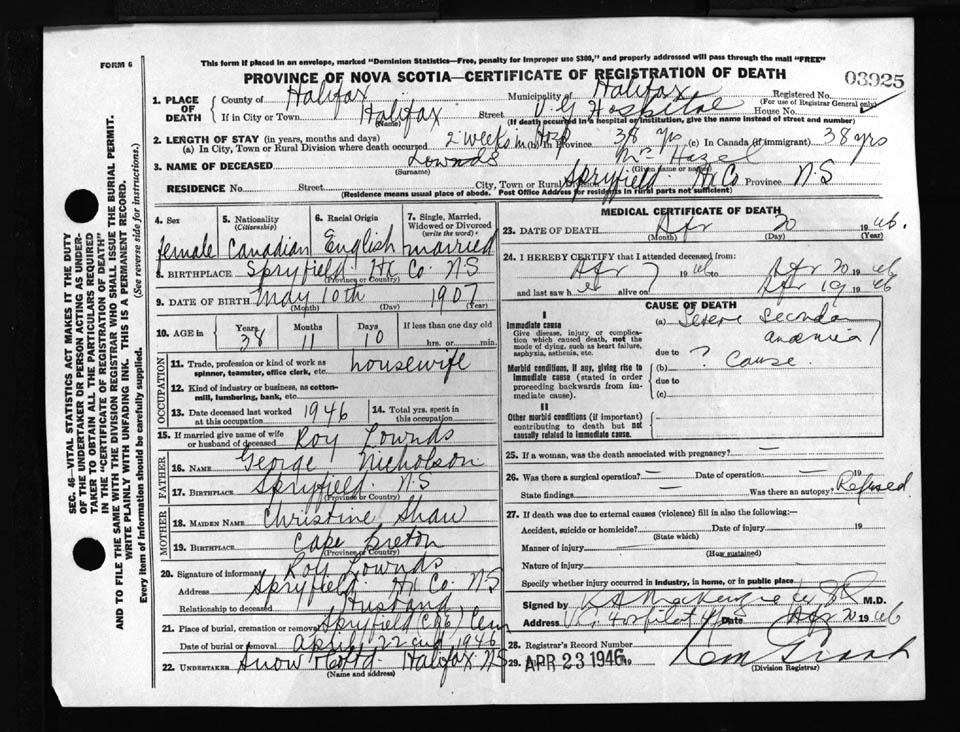 This form if placed in an envelope, marked "Dominion Statistics—Free, penalty for improper use $300," and properly addressed will pass through the mail "FREE"
FORM 6
PROVINCE OF NOVA SCOTIA—CERTIFICATE OF REGISTRATION OF DEATH
03925
1. PLACE OF DEATH
County of Halifax Municipality of Halifax Registered No.
(For use of Registrar General only)
If in City or Town Halifax Street V.G Hospital House No.
(Name) (If death occurred in a hospital or institution, give the name instead of street and number)
2. LENGTH OF STAY (in years, months and days)
(a) In City, Town or Rural Division where death occurred 2 weeks in Hosp (b) In Province 38 yrs (c) In Canada (if immigrant) 38 yrs
3. NAME OF DECEASED Lownds Hazel
(Surname) (Given name or names)
RESIDENCE No. Street City, Town or Rural Division Spryfield Hx Co Province N-S
(Residence means usual place of abode. Post Office Address for residents in rural parts not sufficient)
4. Sex female
5. Nationality (Citizenship) Canadian
6. Racial Origin English
7. Single, Married, Widowed or Divorced (write the word) married
8. BIRTHPLACE Spryfield Hx Co N-S
(Province or Country)
9. DATE OF BIRTH May 10th 1907
(Month) (Day) (Year)
10. AGE in Years 38 Months 11 Days 10 If less than one day old hrs. or min.
OCCUPATION
11. Trade, profession or kind of work as spinner, teamster, office clerk, etc. housewife
12. Kind of industry or business, as cotton-mill, lumbering, bank, etc.
13. Date deceased last worked at this occupation 1946
14. Total yrs. spent in this occupation
15. If married give name of wife or husband of deceased Roy Lownds
FATHER
16. NAME George Nicholson
17. BIRTHPLACE Spryfield N-S
(Province or Country)
MOTHER
18. MAIDEN NAME Christine Shaw
19. BIRTHPLACE Cape Breton
(Province or Country)
20. Signature of informant Roy Lownds
Address Spryfield Hx Co N-S
Relationship to deceased Husband
21. Place of burial, cremation or removal Spryfield (C of E) Cem
Date of burial or removal April 22nd 1946
22. UNDERTAKER Snow & Co Ltd Halifax NS
(Name and address)
MEDICAL CERTIFICATE OF DEATH
23. DATE OF DEATH Apr 20 1946.
(Month) (Day) (Year)
24. I HEREBY CERTIFY that I attended deceased from:
Apr 7 1946 to Apr 20 1946
and last saw her alive on Apr 19 1946
CAUSE OF DEATH
I
Immediate cause
Give disease, injury or complication which caused death, not the mode of dying, such as heart failure, asphyxia, asthenia, etc.
(a) Severe secondary anaemia
due to
Morbid conditions, if any, giving rise to immediate cause (stated in order proceeding backwards from immediate cause).
(b) ? Cause
due to
(c)
II
Other morbid conditions (if important) contributing to death but not causally related to immediate cause.
25. If a woman, was the death associated with pregnancy? —
26. Was there a surgical operation? — Date of operation —
State findings — Was there an autopsy? Refused
27. If death was due to external causes (violence) fill in also the following:—
Accident, suicide or homicide? Date of injury 19
(State which)
Manner of injury
(How sustained)
Nature of injury
Specify whether injury occurred in industry, in home, or in public place
Signed by M.D.
Address Date Apr 20 1946
28. Registrar's Record Number
29. APR 23 1946 19
(Division Registrar)
SEC. 46—VITAL STATISTICS ACT MAKES IT THE DUTY OF THE UNDERTAKER OR PERSON ACTING AS UNDERTAKER TO OBTAIN ALL THE PARTICULARS REQUIRED IN THE "CERTIFICATE OF REGISTRATION OF DEATH" AND TO FILE THE SAME WITH THE DIVISION REGISTRAR WHO SHALL ISSUE THE BURIAL PERMIT.
WRITE PLAINLY WITH UNFADING INK. THIS IS A PERMANENT RECORD.
Every item of information should be carefully supplied. (See reverse side for instructions.)